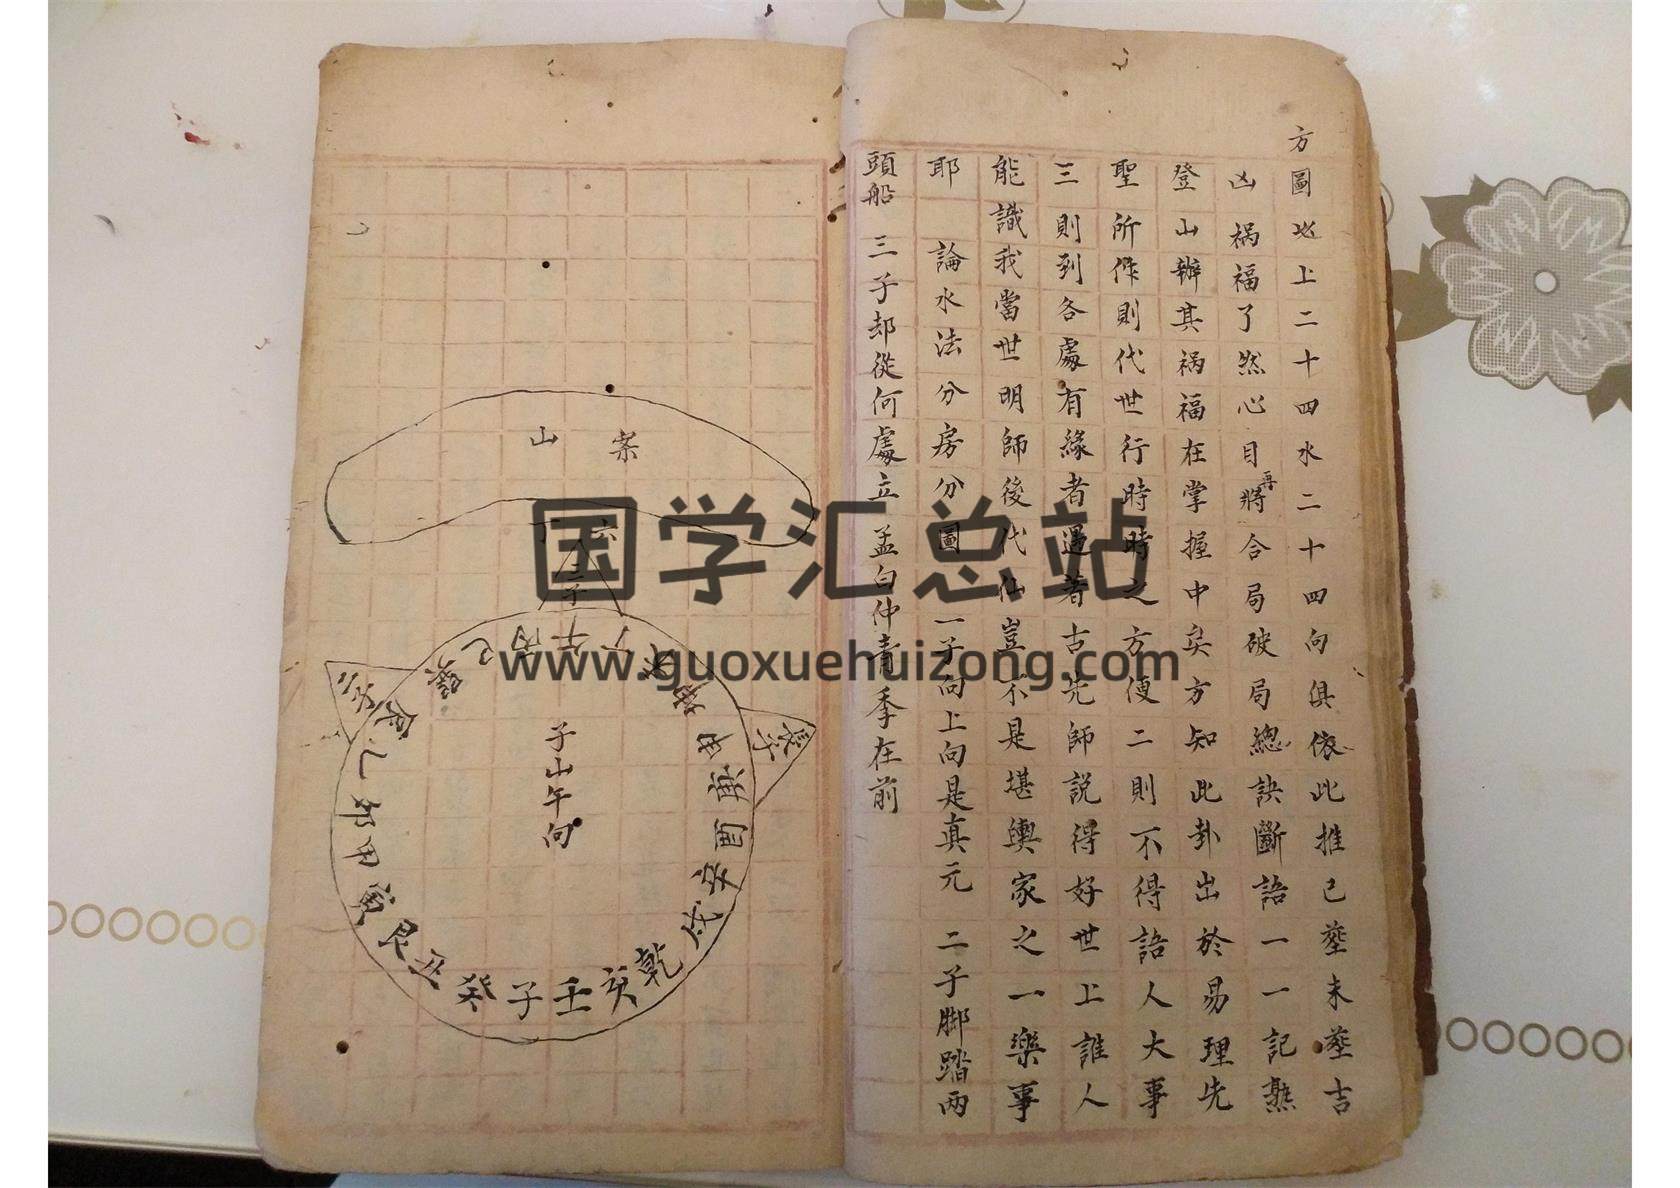 方圖水上二十四水二十四向俱依此推已塟未塟吉
凶禍福了然心目再將合局破局總訣斷語一一記熟
登山辦其禍福在掌握中矣方知此卦出於易理先
聖所作則代世行時時之方便二則不得語人大事
三則到各處有緣者遇著古先師説得好世上誰人
能識我當世明師後代仙豈不是堪輿家之一樂事
耶 論水法分房分圖 一子向上向是真元 二子脚踏兩
頭船 三子却從何處立 孟白仲青季在前
案山
三子
二子
長子
巳丙午丁未坤申庚酉辛戌乾亥壬子癸丑艮寅甲卯乙辰巽
子山午向
国学汇总站
www.guoxuehuizong.com